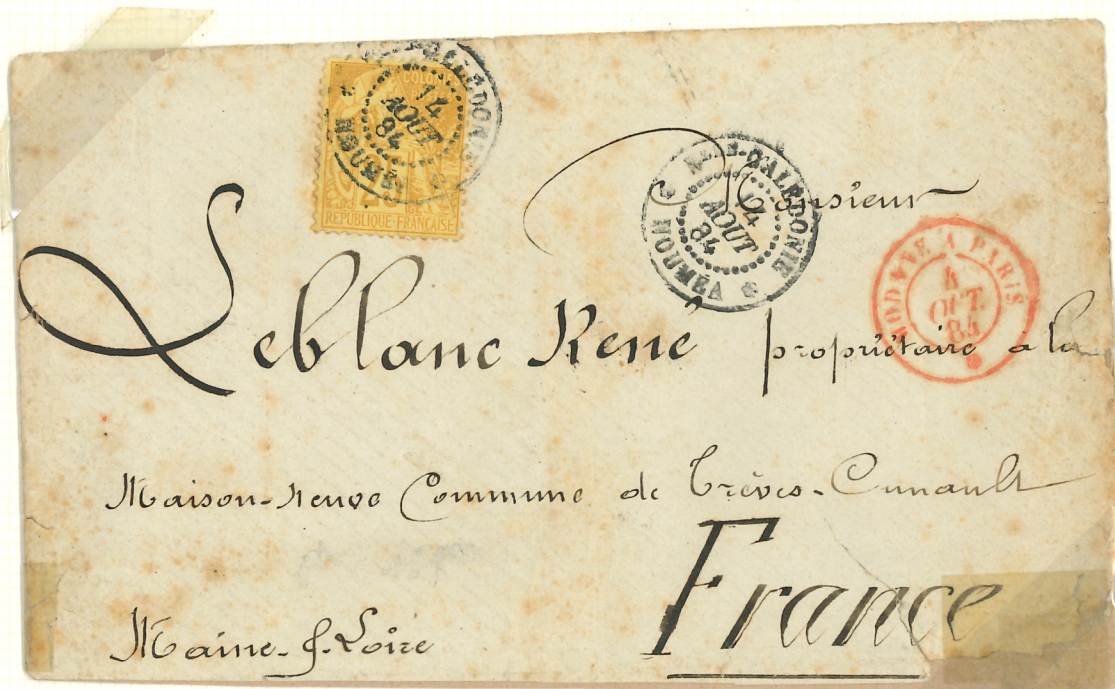 COLONIES
RÉPUBLIQUE-FRANÇAISE
CALEDONIE
14
AOUT
84
NOUMEA
Nelle-CALEDONIE
14
AOUT
84
NOUMÉA
MODANE A PARIS
4
OCT.
84
Monsieur
Leblanc René propriétaire à la
Maison-neuve Commune de Trèves-Cunault
France
Maine-&-Loire